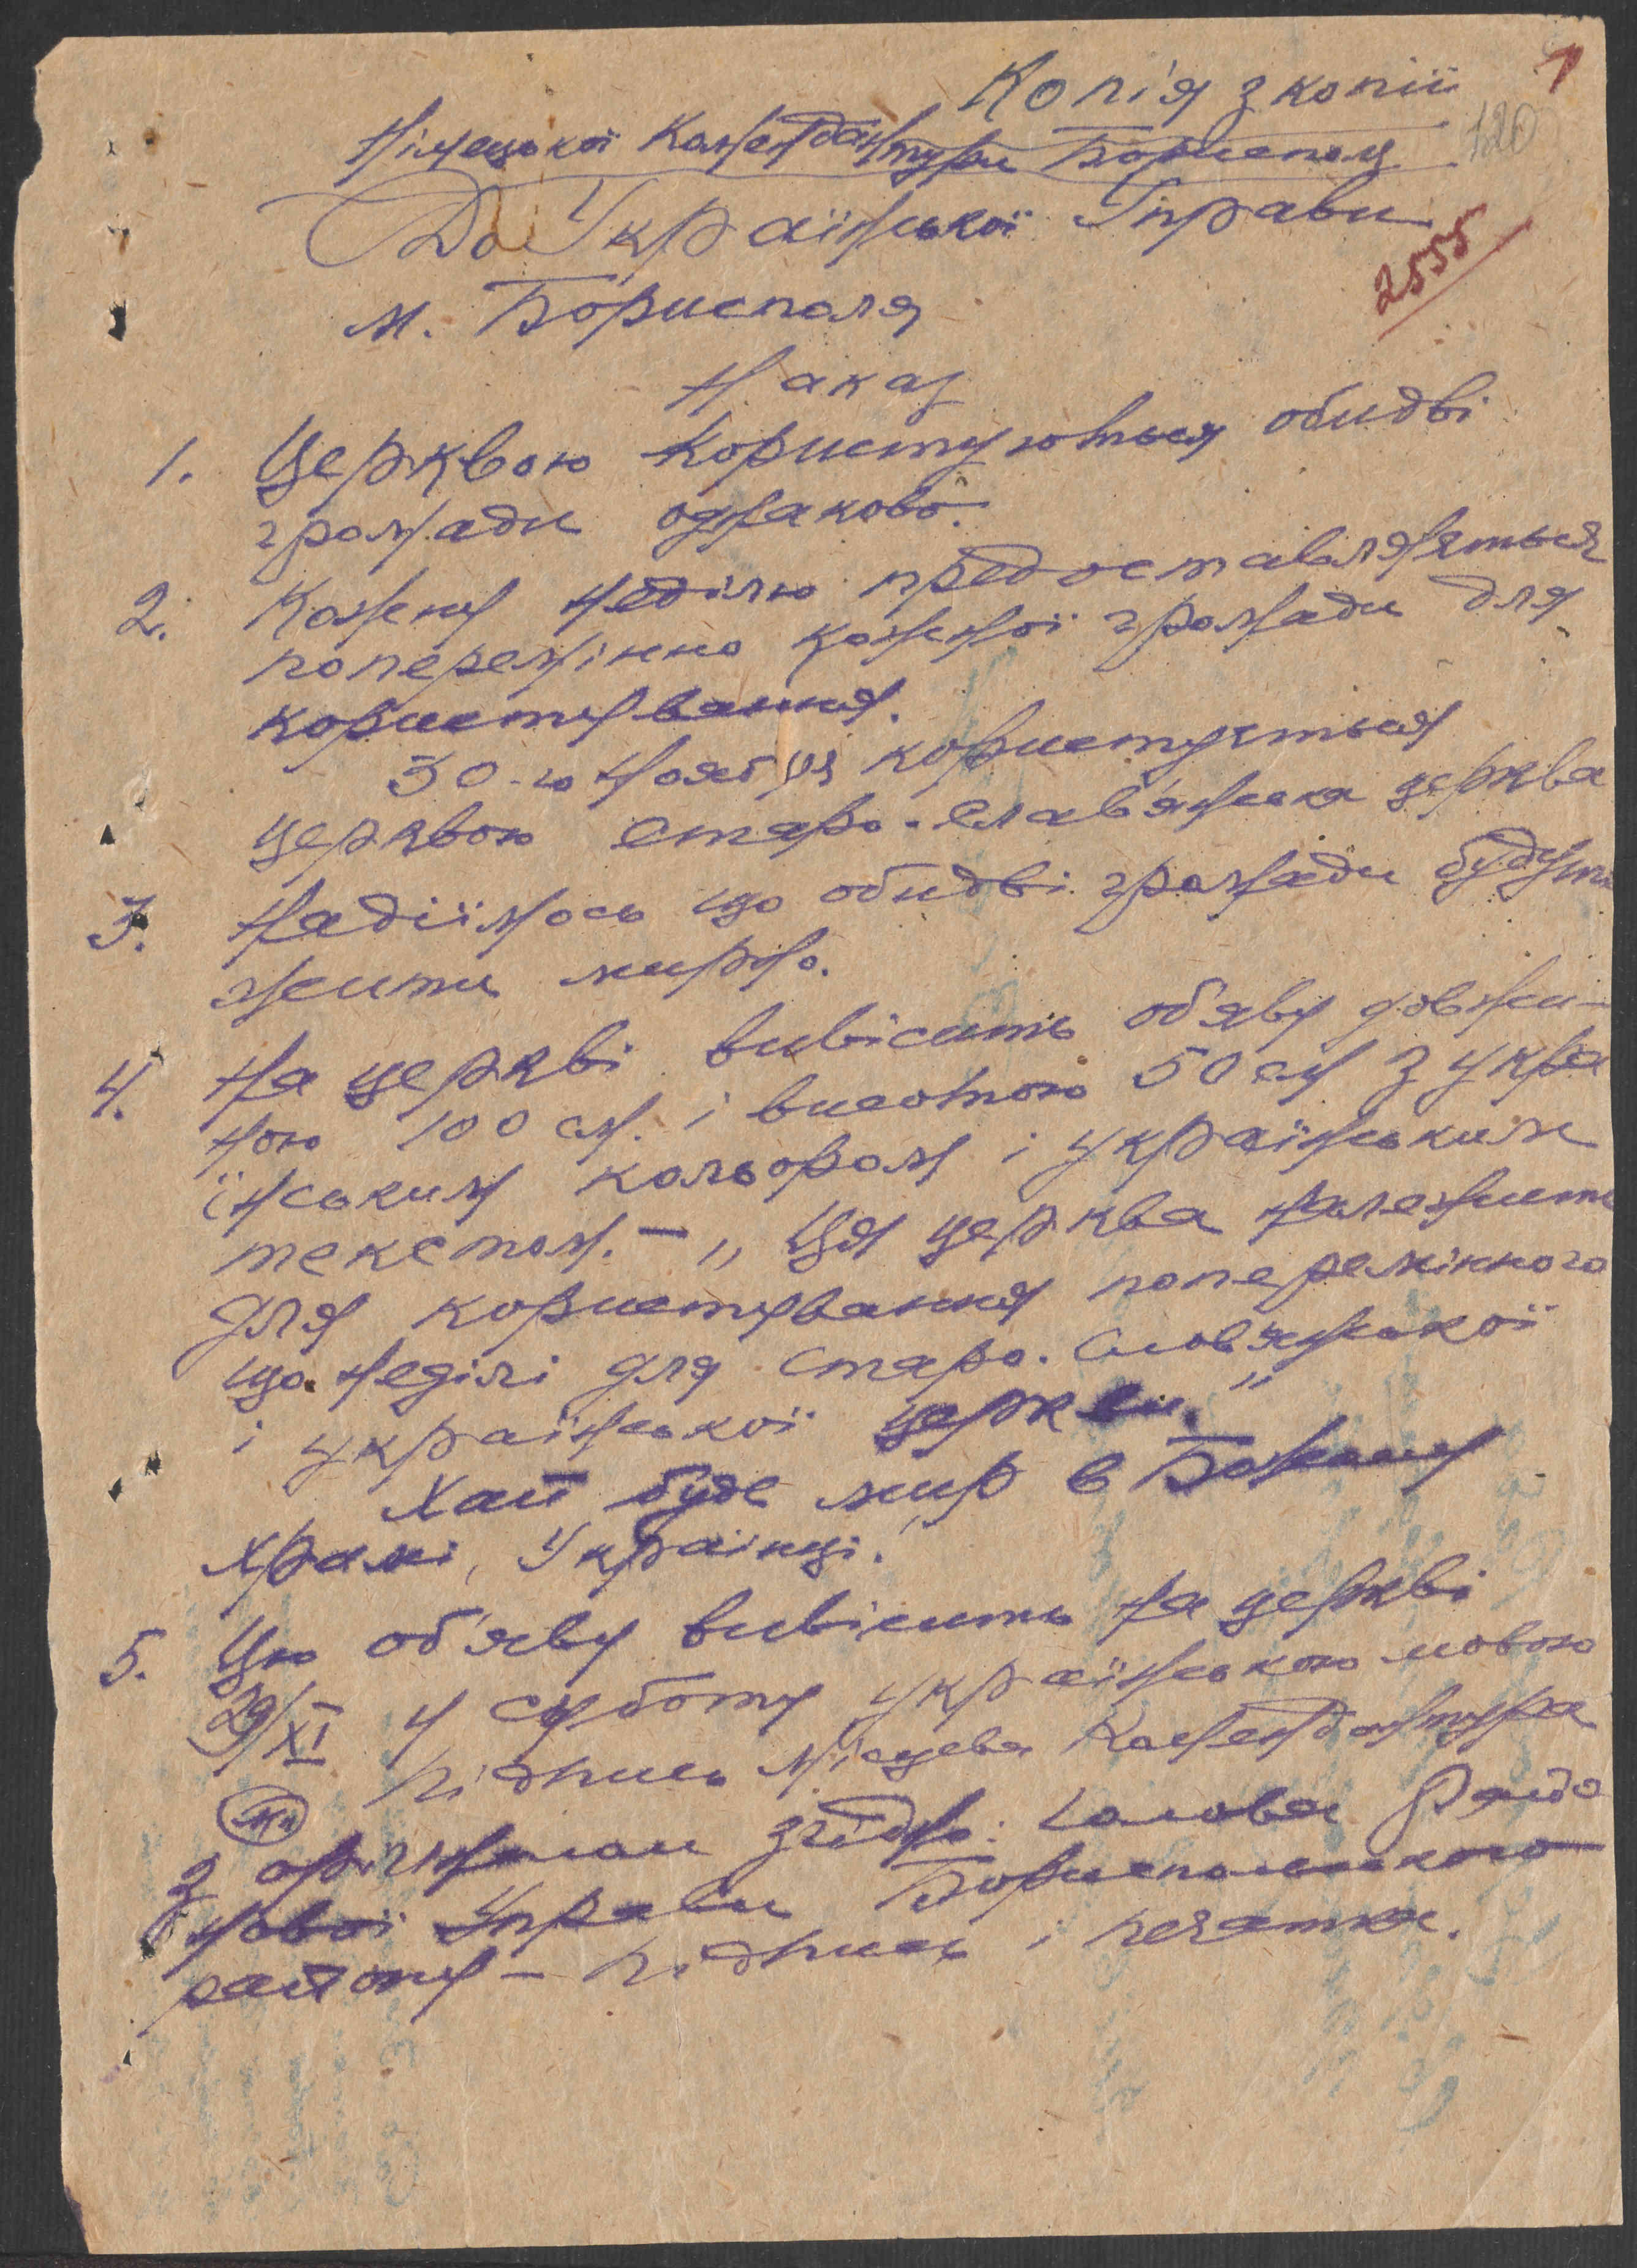 Копія з копії
1
120
Німецької Комендантури Борисполя
До Української Управи
2555
м. Борисполя
Наказ
1. Церквою користуються обидві
громади однаково.
2. Кожну неділю предоставляяться
поперемінно кожної громади для
користування.
30-го ноября користуяться
церквою старо-славянська церква
3. Надіїмось що обидві громади будуть
жити мирно.
4. На церкві вивісить об'яву довжи-
ною 100 см. і висотою 50 см з укра
їнським кольором і українським
текстом. – „Ця церква належить
для користування поперемінного
що неділі для старо. Словянської
і української церкви."
Хай буде мир в Божому
храмі, Українці!
5. Цю об'яву вивісить на церкві
29/XI у суботу українською мовою
підпись Місцева Комендантура
МП
З орігіналом згідно: Голова Райо
нової Управи Бориспольського
району – підпись і печатка.